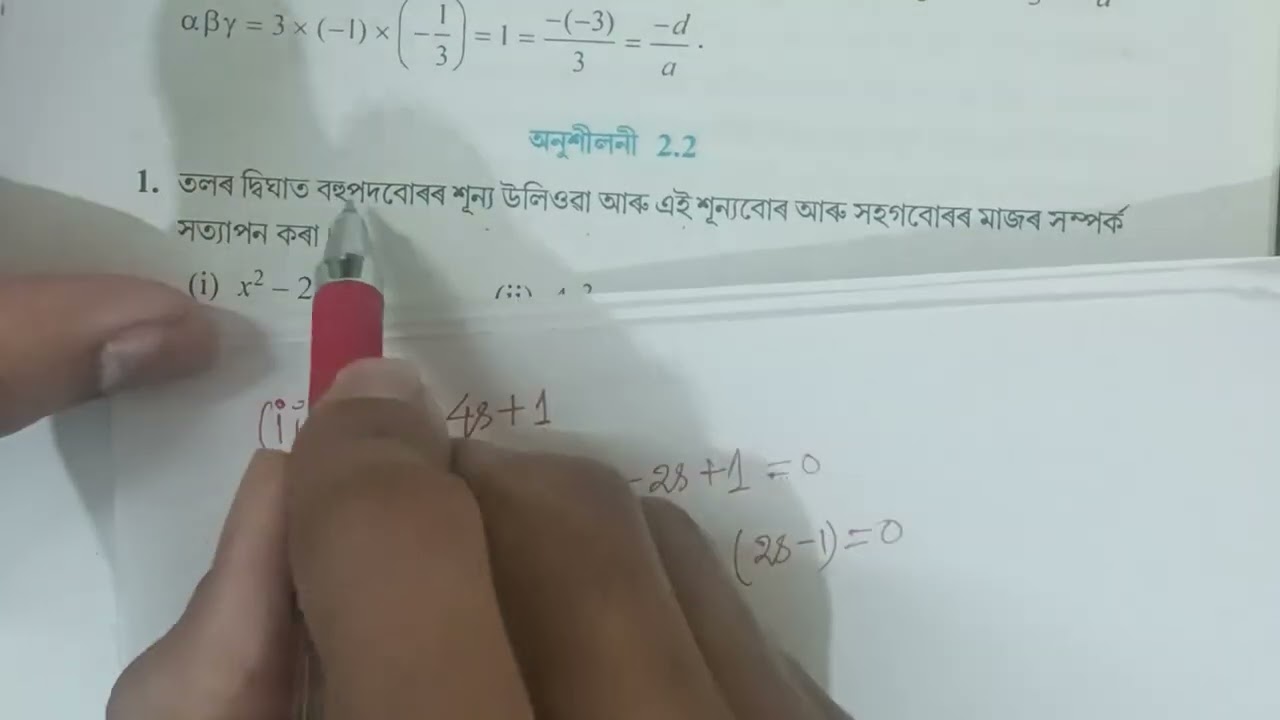 αβγ = 3 × (−1) × (−1/3) = 1 = −(−3)/3 = −d/a .
অনুশীলনী 2.2
1. তলৰ দ্বিঘাত বহুপদবোৰৰ শূন্য উলিওৱা আৰু এই শূন্যবোৰ আৰু সহগবোৰৰ মাজৰ সম্পৰ্ক
সত্যাপন কৰা
(i) x² − 2 (ii)
(ii 4s + 1
− 2s + 1 = 0
(2s − 1) = 0